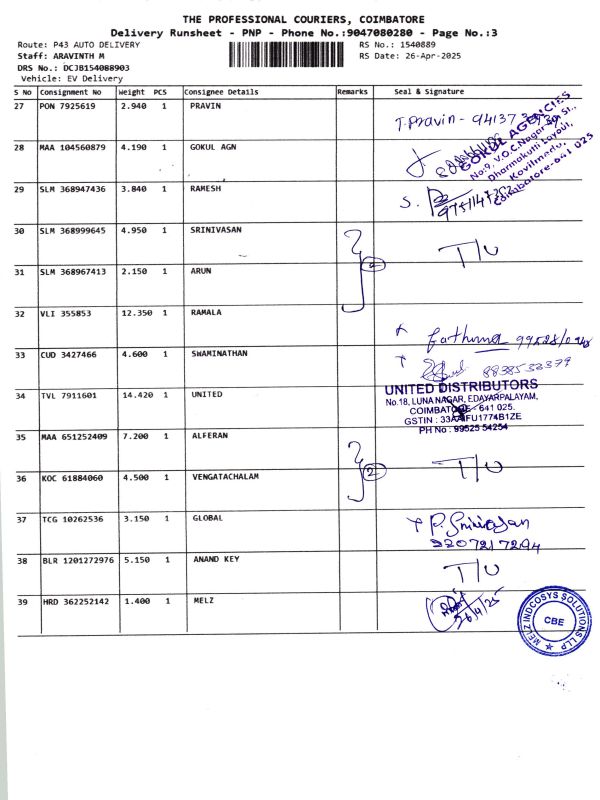 THE PROFESSIONAL COURIERS, COIMBATORE
Delivery Runsheet - PNP - Phone No.:9047080280 - Page No.:3
Route: P43 AUTO DELIVERY
Staff: ARAVINTH M
DRS No.: DCJB154088903
Vehicle: EV Delivery
RS No.: 1540889
RS Date: 26-Apr-2025
S No Consignment No Weight PCS Consignee Details Remarks Seal & Signature
27 PON 7925619 2.940 1 PRAVIN T.Pravin -
28 MAA 104560879 4.190 1 GOKUL AGN
GOKUL AGENCIES
No:9, V.O.C.Nagar, St.,
Dharmakutti Layout,
Kovilmedu,
Coimbatore-641 025
29 SLM 368947436 3.840 1 RAMESH S.
30 SLM 368999645 4.950 1 SRINIVASAN T/U
31 SLM 368967413 2.150 1 ARUN
32 VLI 355853 12.350 1 RAMALA Fathima
33 CUD 3427466 4.600 1 SWAMINATHAN 8838533379
34 TVL 7911601 14.420 1 UNITED
UNITED DISTRIBUTORS
No.18, LUNA NAGAR, EDAYARPALAYAM,
COIMBATORE - 641 025.
GSTIN : 33AAFU1774B1ZE
PH No : 99525 54254
35 MAA 651252409 7.200 1 ALFERAN 2 T/U
36 KOC 61884060 4.500 1 VENGATACHALAM
37 TCG 10262536 3.150 1 GLOBAL P. Srinivasan
9207217294
38 BLR 1201272976 5.150 1 ANAND KEY T/U
39 HRD 362252142 1.400 1 MELZ 26/4/25
MELZ INDCOSYS SOLUTIONS LLP
CBE